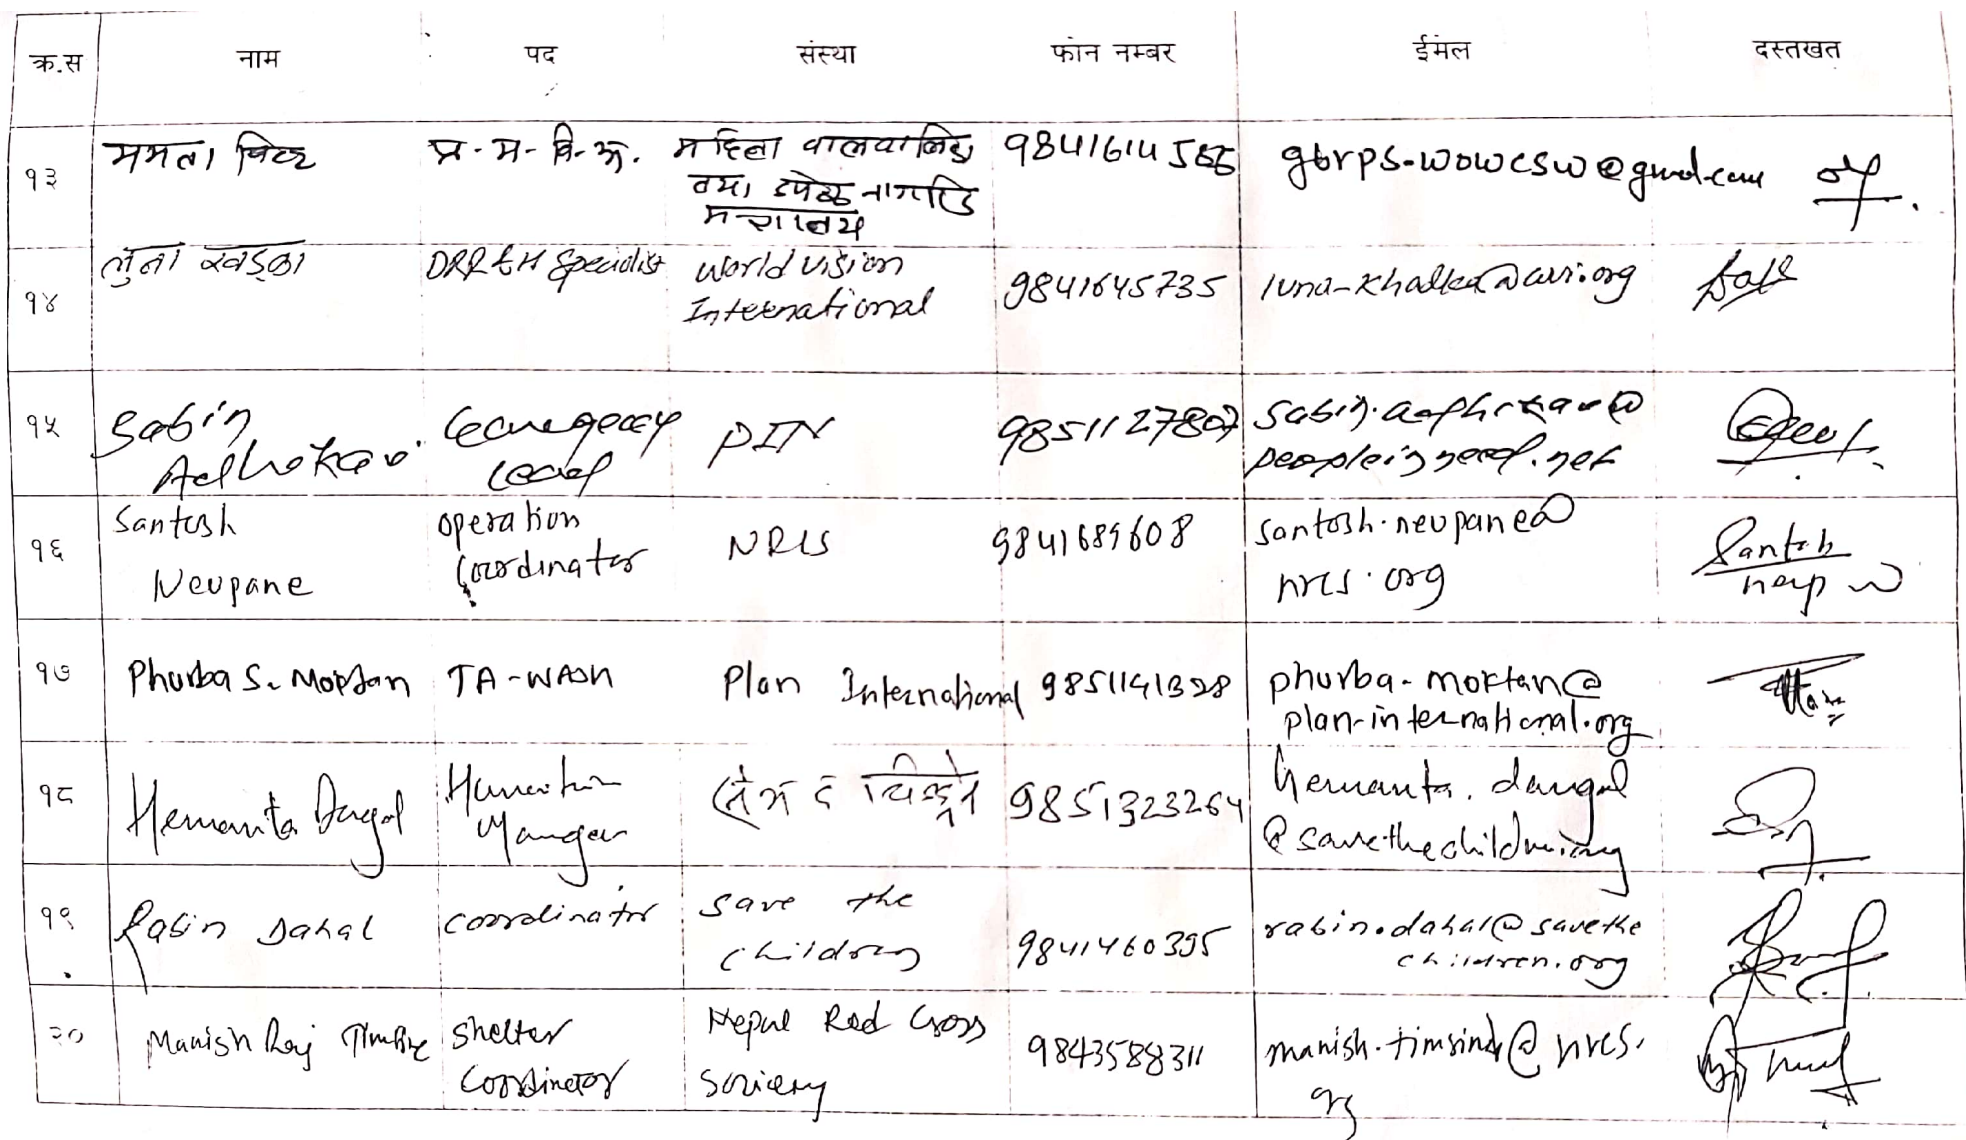 क्र.स नाम पद संस्था फोन नम्बर ईमेल दस्तखत
१३ ममता प्र.म.वि.अ. महिला वालवालिका 9841614566
तथा नागरिक
मन्त्रालय
१४ लुना खड्का DRR Specialist World Vision
International 9841645735 luna-khadka@wvi.org
१५ Sabin
Adhikari Lead PIN 9851127807 sabin.adhikari@
peopleinneed.net
१६ Santosh
Neupane Operation
Coordinator NRCS 9841689608 santosh.neupane@
nrcs.org
१७ Phurba S. Moktan TA-WASH Plan International 9851141328 phurba-moktan@
plan-international.org
१८ Hemanta Dangal Manager सेभ द चिल्ड्रेन 9851323264 hemanta.dangal
@savethechildren.org
१९ Rabin Dahal coordinator save the
children 9841460395 rabin.dahal@savethe
children.org
२० Manish Raj Shelter
Coordinator Nepal Red Cross
Society 9843588311 manish.timsina@nrcs.
org